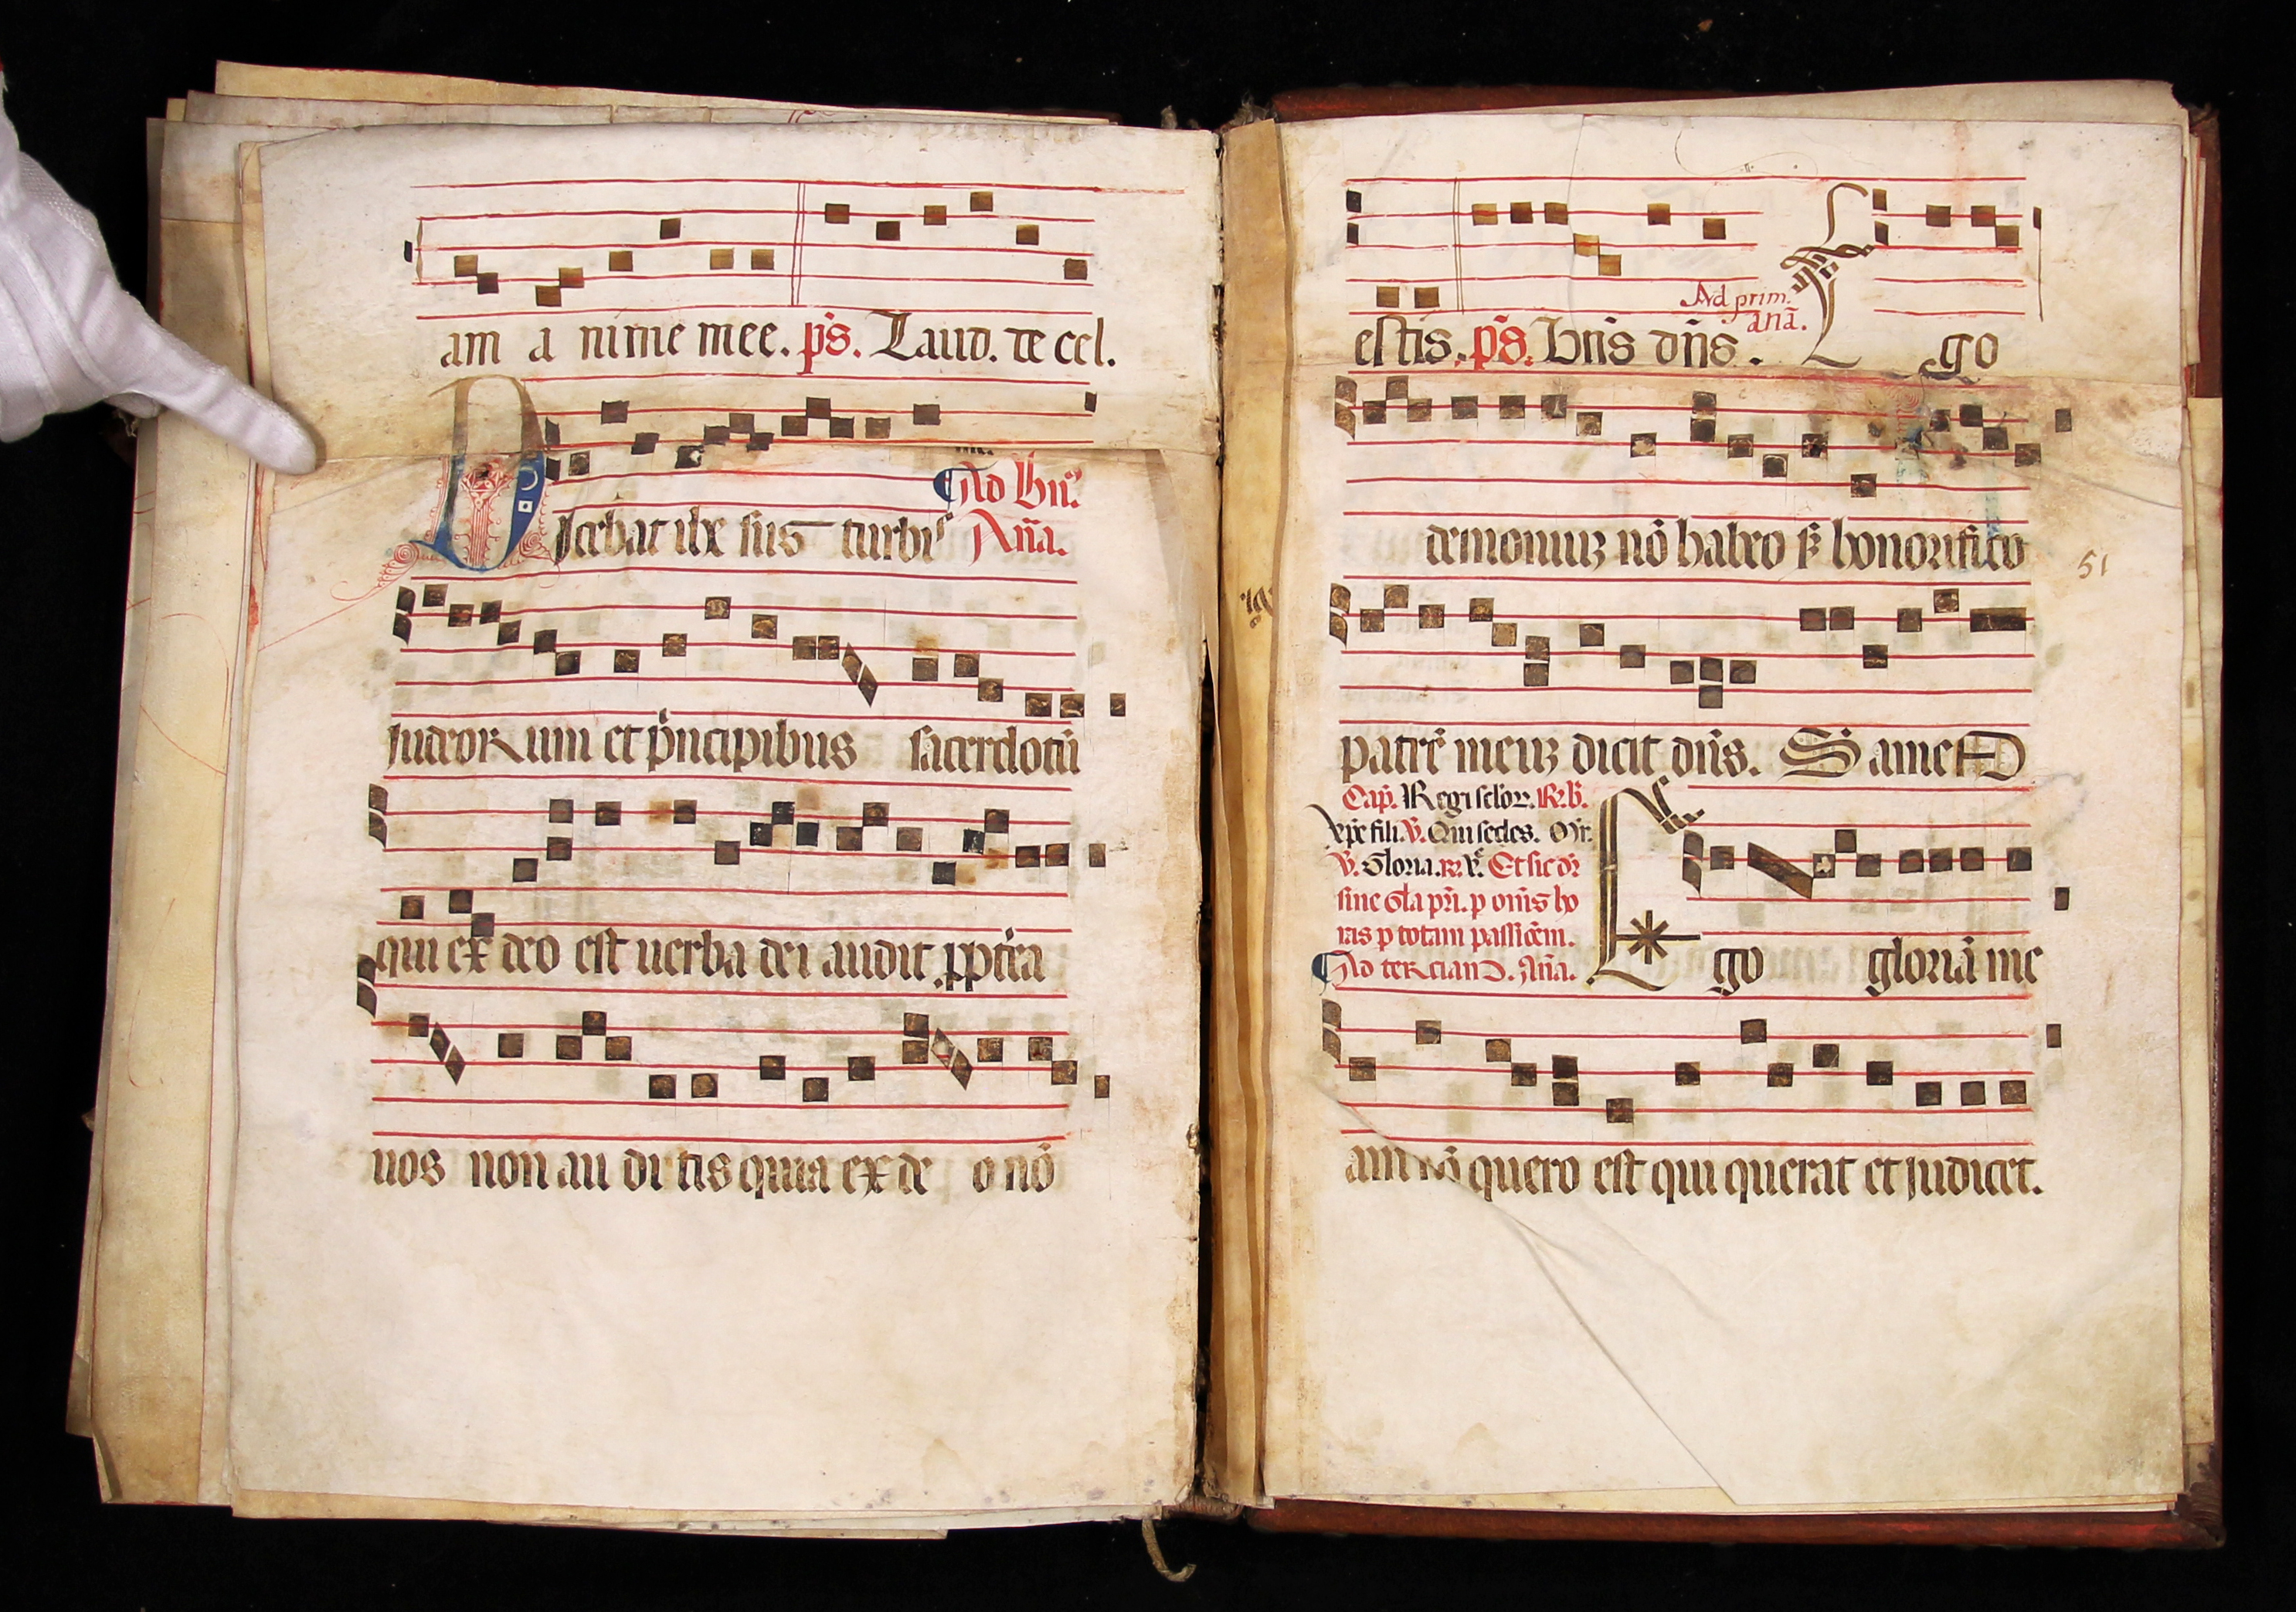 am a nime mee. p̄s. Laud. de cel.
Ad bn̄.
Dicebat ihesus turbis Añā.
Judeorum et p̍ncipibus sacerdotū
qui ex deo est uerba dei audit ꝓpt̍ea
uos non au di tis quia ex de o nō
estis. p̄s. Bn̄s dn̄s. Ad prim. anā. Ego
demoniuꝫ nō habeo sꝫ honorifico
51
patrē meuꝫ dicit dn̄s. SameD
Cap̄. Regi seclor. R. b̄.
xp̄e fili. V̄. Qui sedes.
V̄. Gloria. R. Et sic dr̄
sine Gl̄a pri. p om̄s ho
ras p totam passiōem.
Ad terciam. Añā. Ego gloriā me
am nō quero est qui querat et judicet.